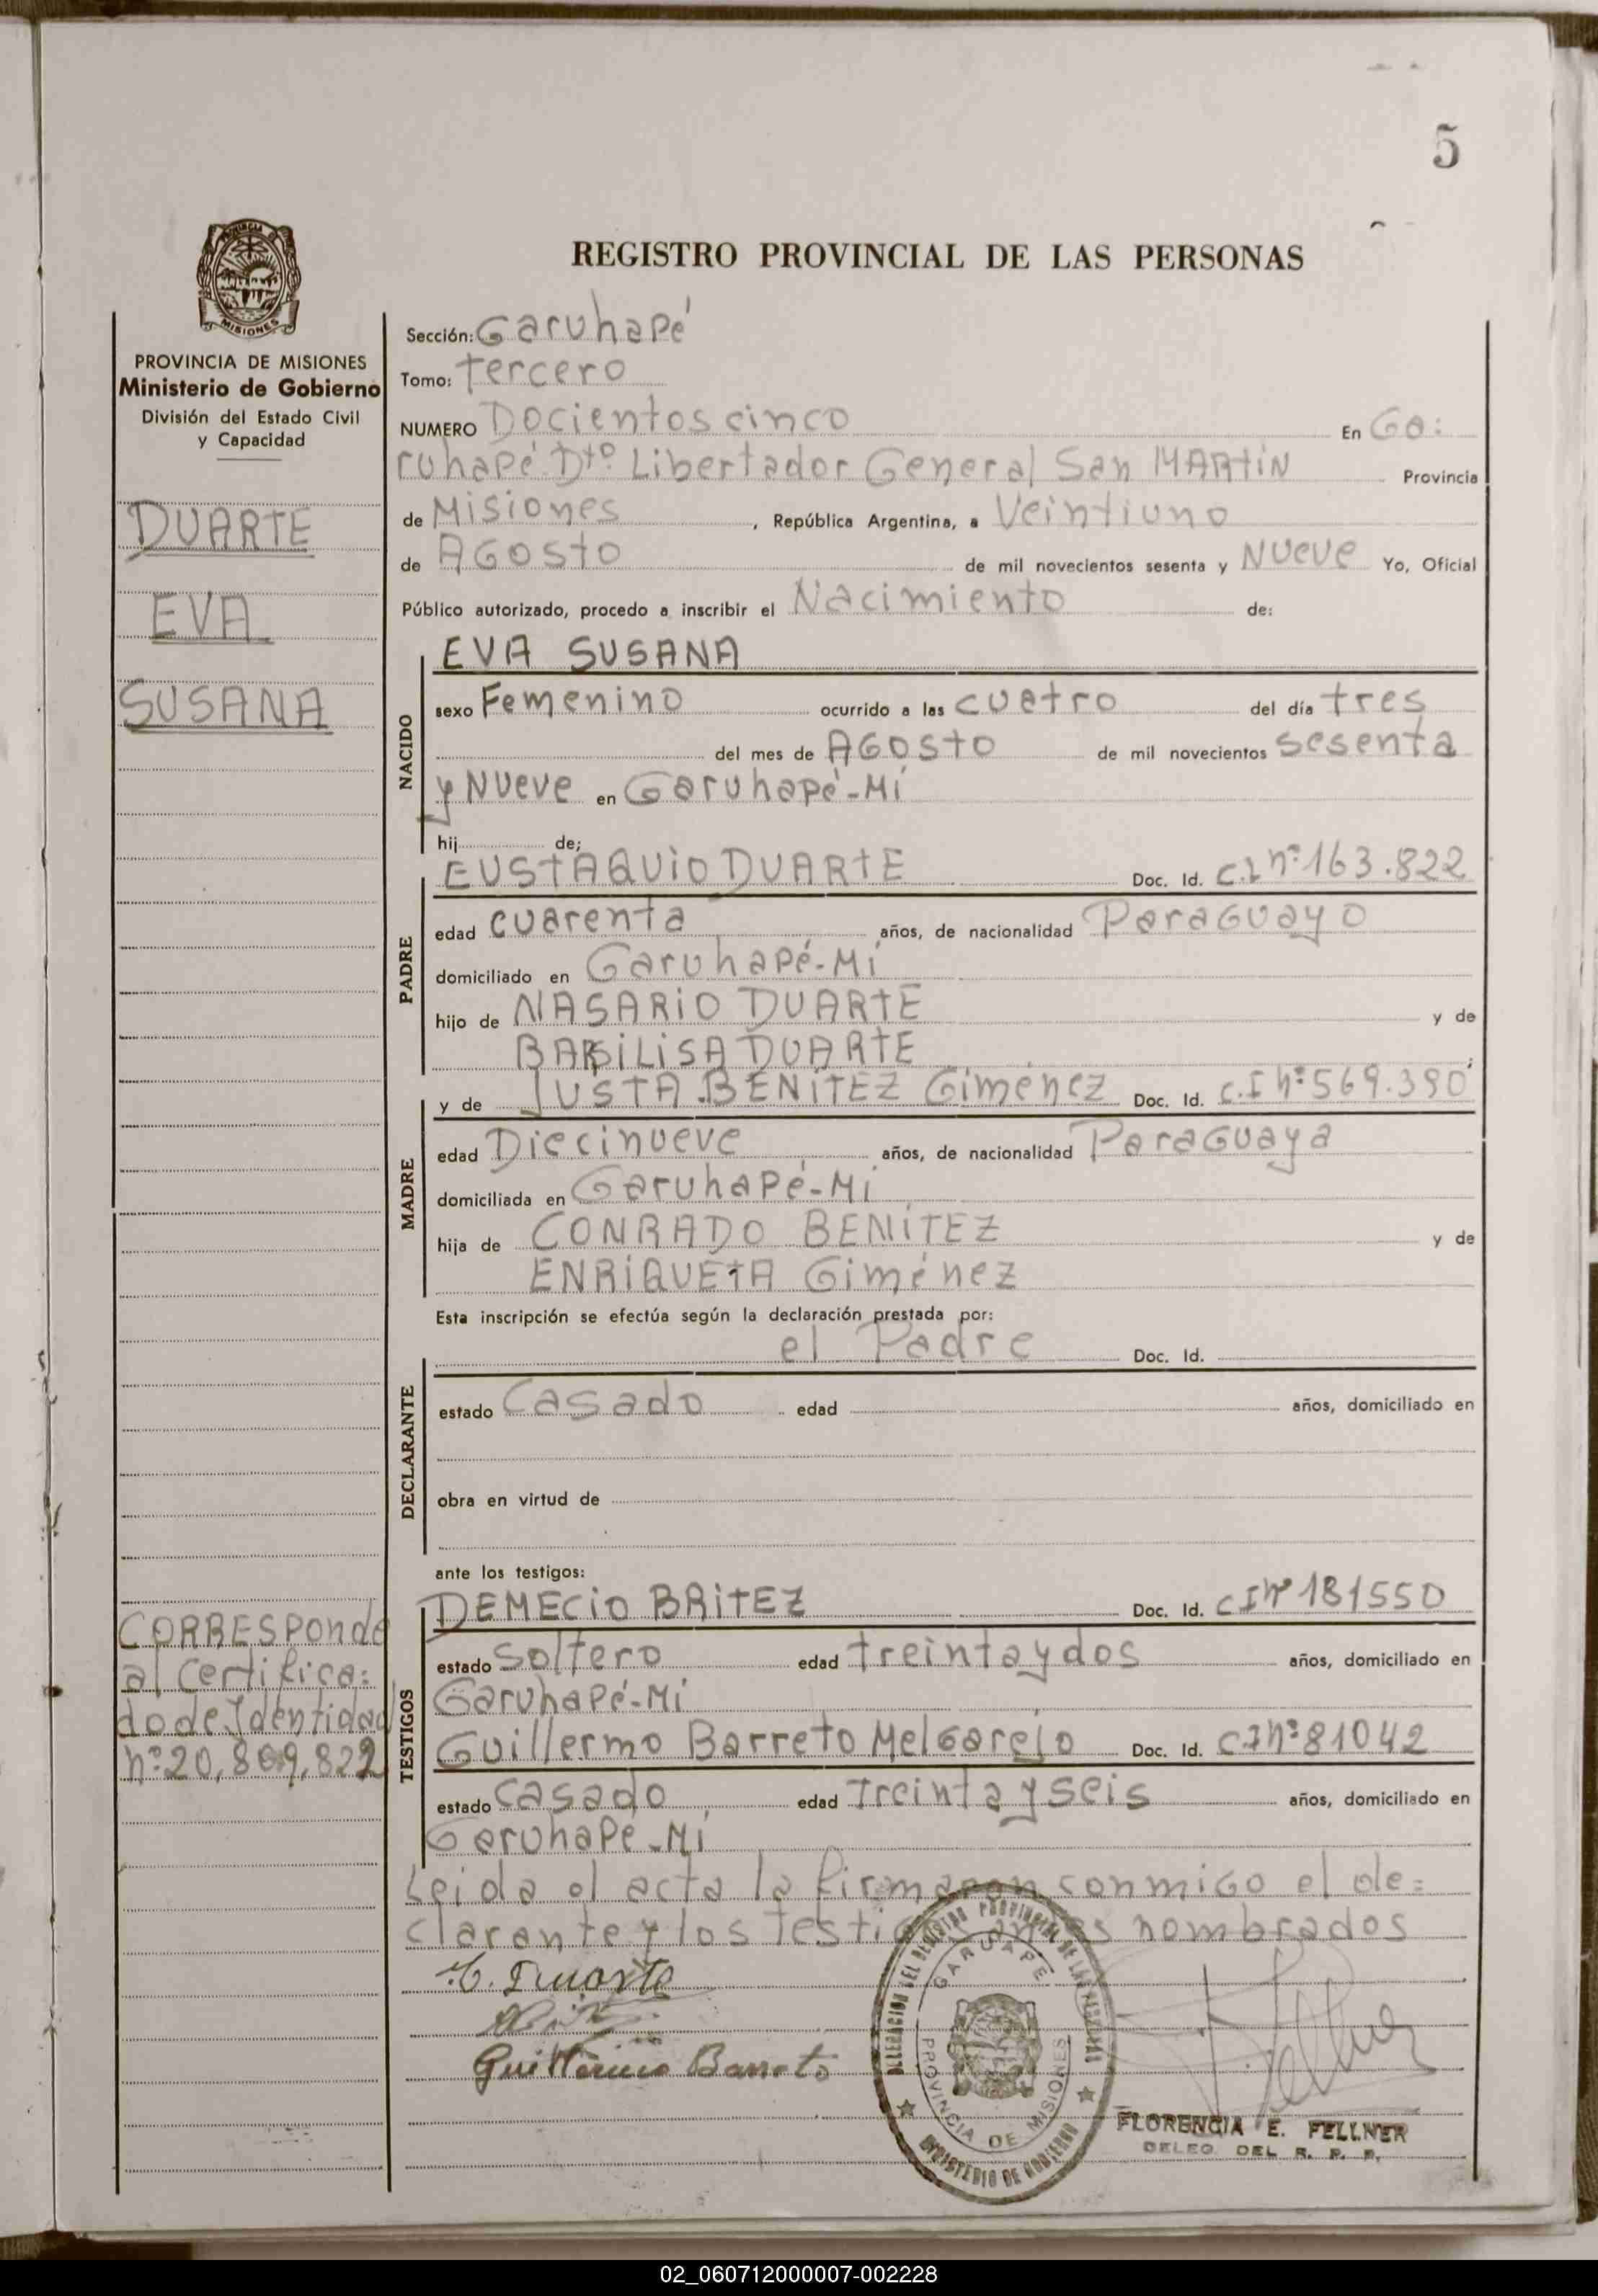 5
REGISTRO PROVINCIAL DE LAS PERSONAS
PROVINCIA
MISIONES
PROVINCIA DE MISIONES
Ministerio de Gobierno
División del Estado Civil
y Capacidad
DUARTE
EVA
SUSANA
Sección: Garuhapé
Tomo: tercero
NUMERO Docientos cinco En Ga:
ruhapé Dtº Libertador General San MARtiN Provincia
de Misiones , República Argentina, a Veintiuno
de AGosto de mil novecientos sesenta y NUeve Yo, Oficial
Público autorizado, procedo a inscribir el Nacimiento de:
NACIDO
EVA SUSANA
sexo Femenino ocurrido a las cuatro del día tres
del mes de AGosto de mil novecientos sesenta
y Nueve en Garuhapé-Mí
hij de;
PADRE
EUStAQUiO DUARtE Doc. Id. C.I nº 163.822
edad cuarenta años, de nacionalidad ParaGuayo
domiciliado en Garuhapé-Mí
hijo de NASARiO DUARtE y de
BASiLiSA DUARtE
MADRE
y de JUSTA BENíTEZ Giménez Doc. Id. C.I nº 569.390
edad Diecinueve años, de nacionalidad ParaGuaya
domiciliada en Garuhapé-Mí
hija de CONRADO BENíTEZ y de
ENRiQUEtA Giménez
Esta inscripción se efectúa según la declaración prestada por:
DECLARANTE
el Padre Doc. Id.
estado Casado edad años, domiciliado en
obra en virtud de
ante los testigos:
TESTIGOS
DEMECiO BRitEZ Doc. Id. C I nº 181550
estado Soltero edad treinta y dos años, domiciliado en
Garuhapé-Mí
Guillermo Barreto MelGarejo Doc. Id. C I nº 81042
estado casado edad treinta y seis años, domiciliado en
Garuhapé-Mí
CORRESPonde
al Certifica:
do de Identidad
nº 20,809,822
Leida el acta la firmaron conmiGo el de=
clarante y los testigos antes nombrados
E. Duarte
Guillermo Barreto
DELEGACION DEL REGISTRO PROVINCIAL DE LAS PERSONAS
GARUAPE
PROVINCIA DE MISIONES
MINISTERIO DE GOBIERNO
FLORENCIA E. FELLNER
DELEG. DEL R. P. P.
02_060712000007-002228